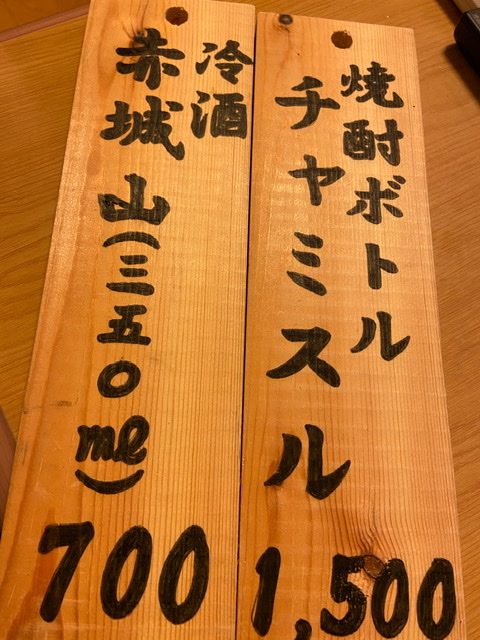 焼酎ボトル
チヤミスル
1,500
冷酒
赤城山(三五〇ml)
700